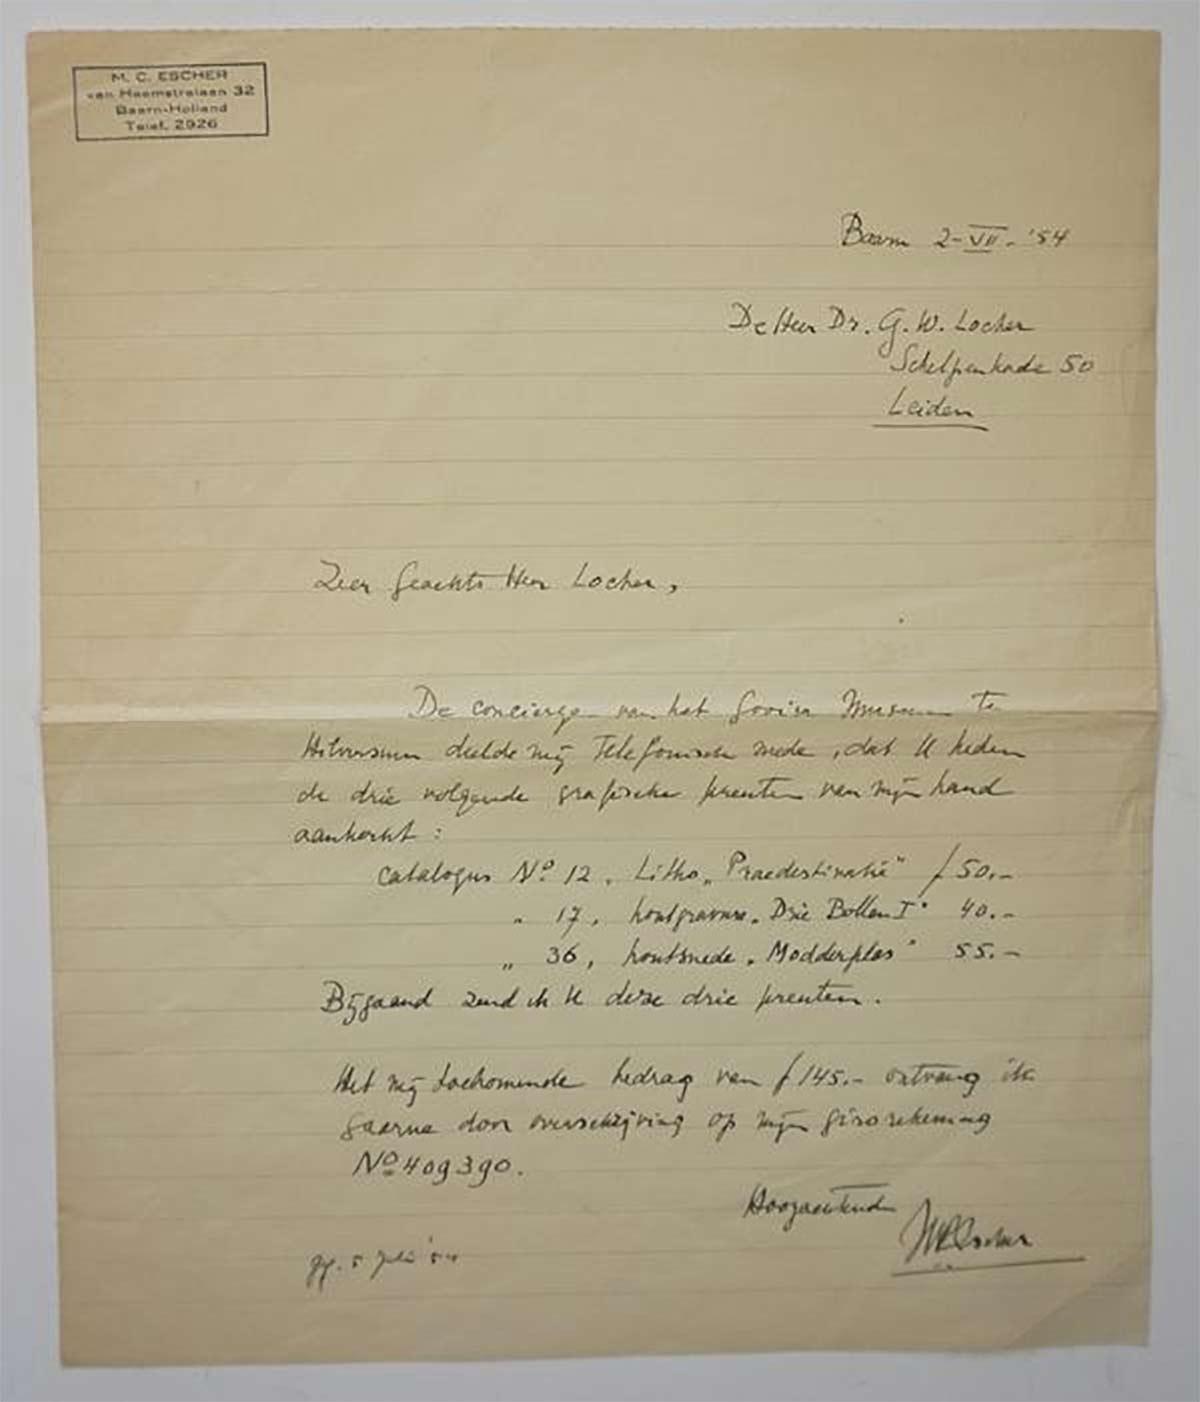 M. C. ESCHER
van Heemstralaan 32
Baarn-Holland
Telef. 2926
Baarn 2-VII-'54
De Heer Dr. G. W. Locher
Schelpenkade 50
Leiden
Zeer Geachte Heer Locher,
De concierge van het Goois Museum te
Hilversum deelde mij telefonisch mede, dat U heden
de drie volgende grafische prenten van mijn hand
aankocht:
catalogus No 12, Litho „Praedestinatie" f 50.-
" 17, houtgravure „Drie Bollen I" 40.-
" 36, houtsnede „Modderplas" 55.-
Bijgaand zend ik U deze drie prenten.
Het mij toekomende bedrag van f 145.- ontvang ik
gaarne door overschrijving op mijn girorekening
No 409390.
Hoogachtend
MCEscher
5 juli '54